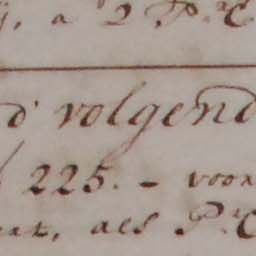 , a 2 P.r C
d' volgend
225. - voor
, als P.r C